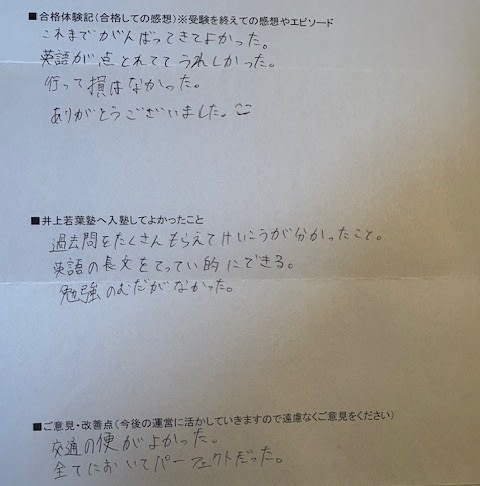 ■合格体験記(合格しての感想)※受験を終えての感想やエピソード
これまでがんばってきてよかった。
英語が点とれててうれしかった。
行って損はなかった。
ありがとうございました。
■井上若葉塾へ入塾してよかったこと
過去問をたくさんもらえてけいこうが分かったこと。
英語の長文をてってい的にできる。
勉強のむだがなかった。
■ご意見・改善点(今後の運営に活かしていきますので遠慮なくご意見をください)
交通の便がよかった。
全てにおいてパーフェクトだった。